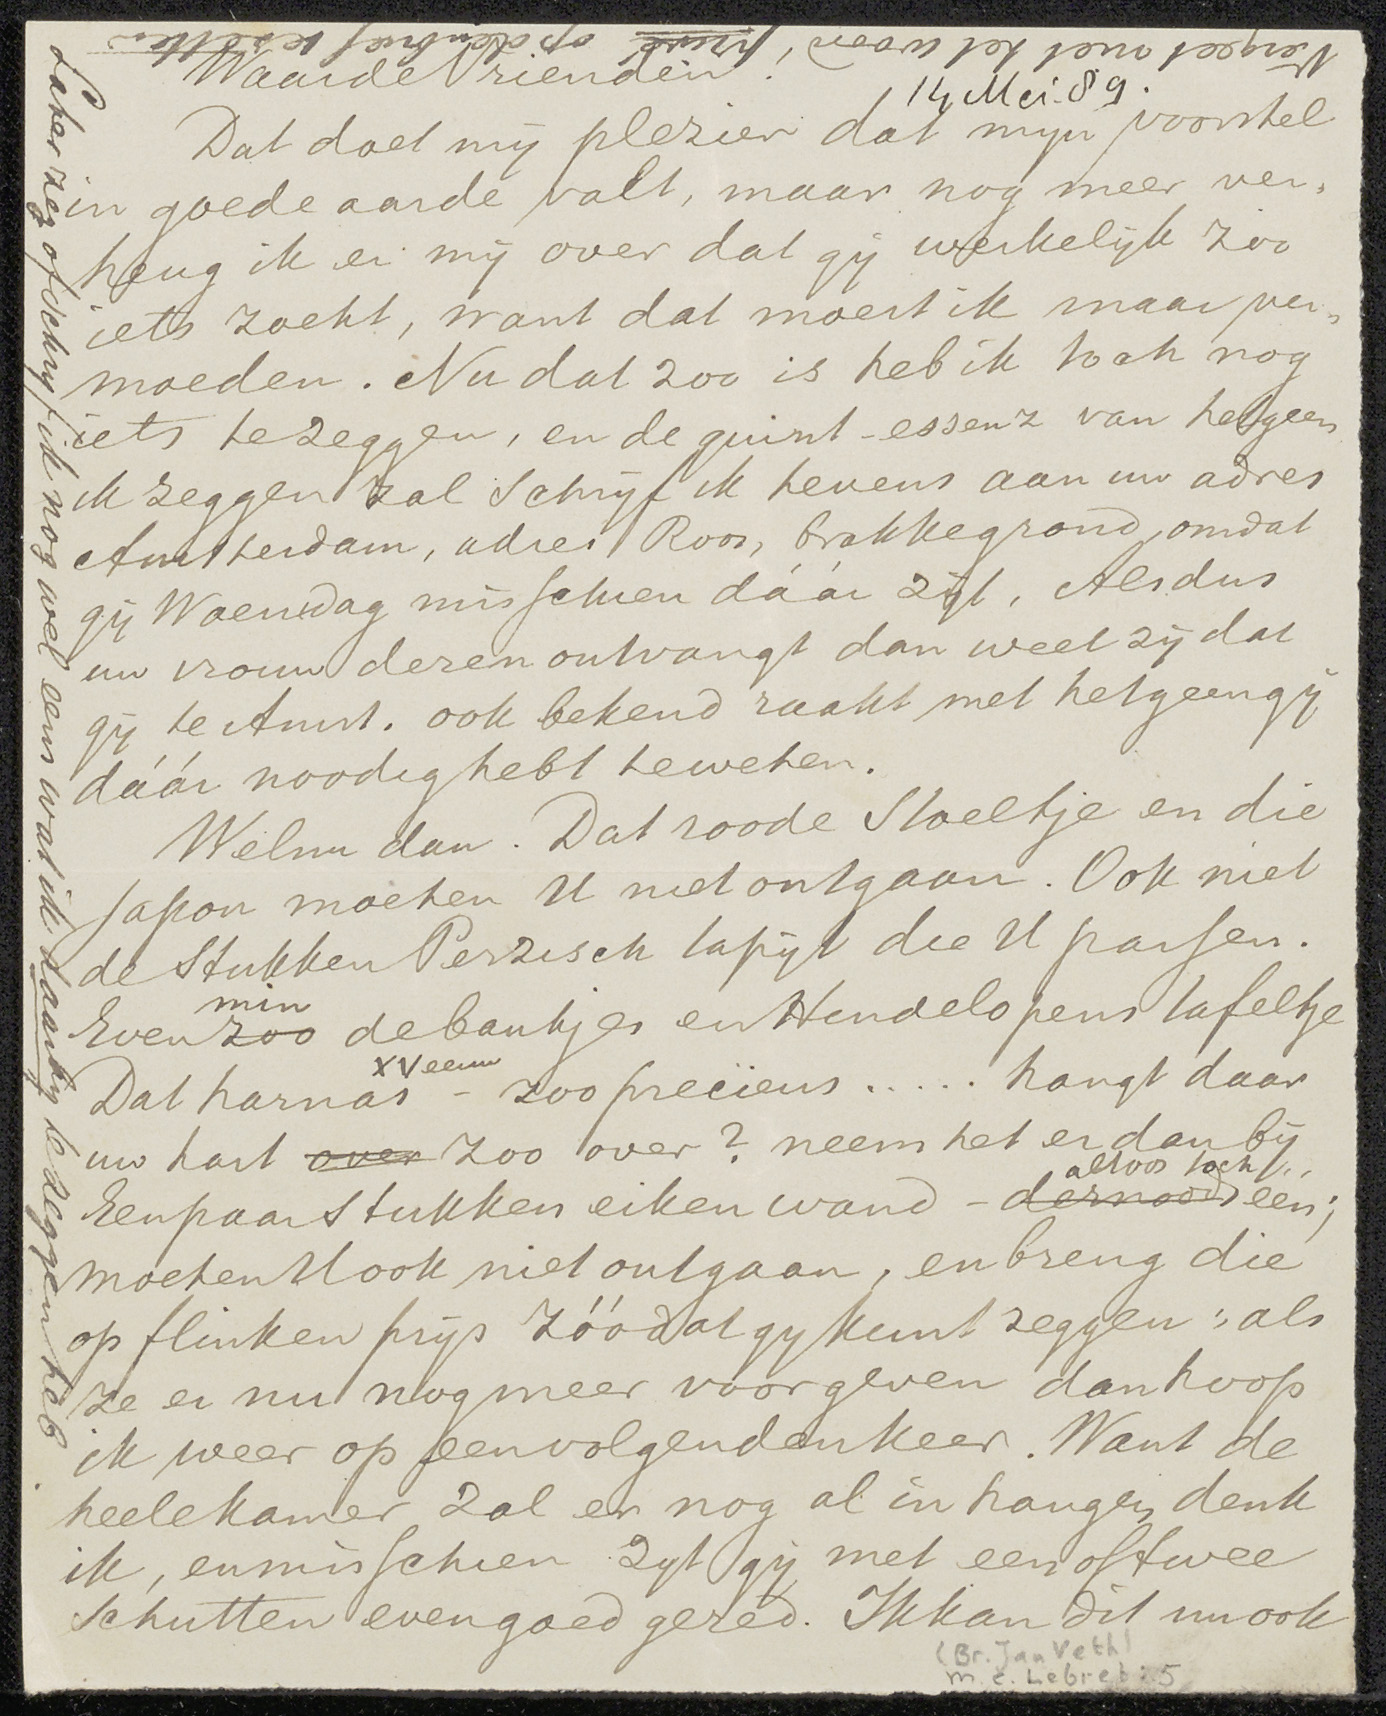 Vergeet niet het woord privé op den brief te zetten
Waarde Vrienden!
14 Mei. 89.
Dat doet mij plezier dat mijn voorstel
in goede aarde valt, maar nog meer ver„
heug ik er mij over dat gij werkelijk zoo
iets zoekt, want dat moest ik maar ver„
moeden. Nu dat zoo is heb ik toch nog
iets te zeggen, en de quint-essenz van hetgeen
ik zeggen zal schrijf ik tevens aan uw adres
Amsterdam, adres Roos, brakkegrond, omdat
gij Woensdag misschien dáár zijt, Als dus
uw vrouw dezen ontvangt dan weet zij dat
gij te Amst. ook bekend raakt met hetgeen gij
dáár noodig hebt te weten.
Welnu dan. Dat roode Stoeltje en die
Japon moeten U niet ontgaan. Ook niet
de Stukken Perzisch tapijt die U passen.
Even zoo min de bankjes en Hindelopens tafeltje
Dat harnas XV eeuw - zoo precieus ..... hangt daar
uw hart over zoo over? neem het er dan bij
Een paar Stukken eiken wand - dernoods altoos toch één;
moeten U ook niet ontgaan, en breng die
op flinken prijs zóódat gy kunt zeggen: als
ze er nu nog meer voor geven dan hoop
ik weer op een volgenden keer. Want de
heele kamer zal er nog al in hangen denk
ik, en misschien zyt gij met een of twee
Schutten even goed gered. Ik kan dit nu ook
Later zeg of schryf ik nog wel eens wat ik daarby te zeggen heb
(Br. Jan Veth)
M. C. Lebret: 5